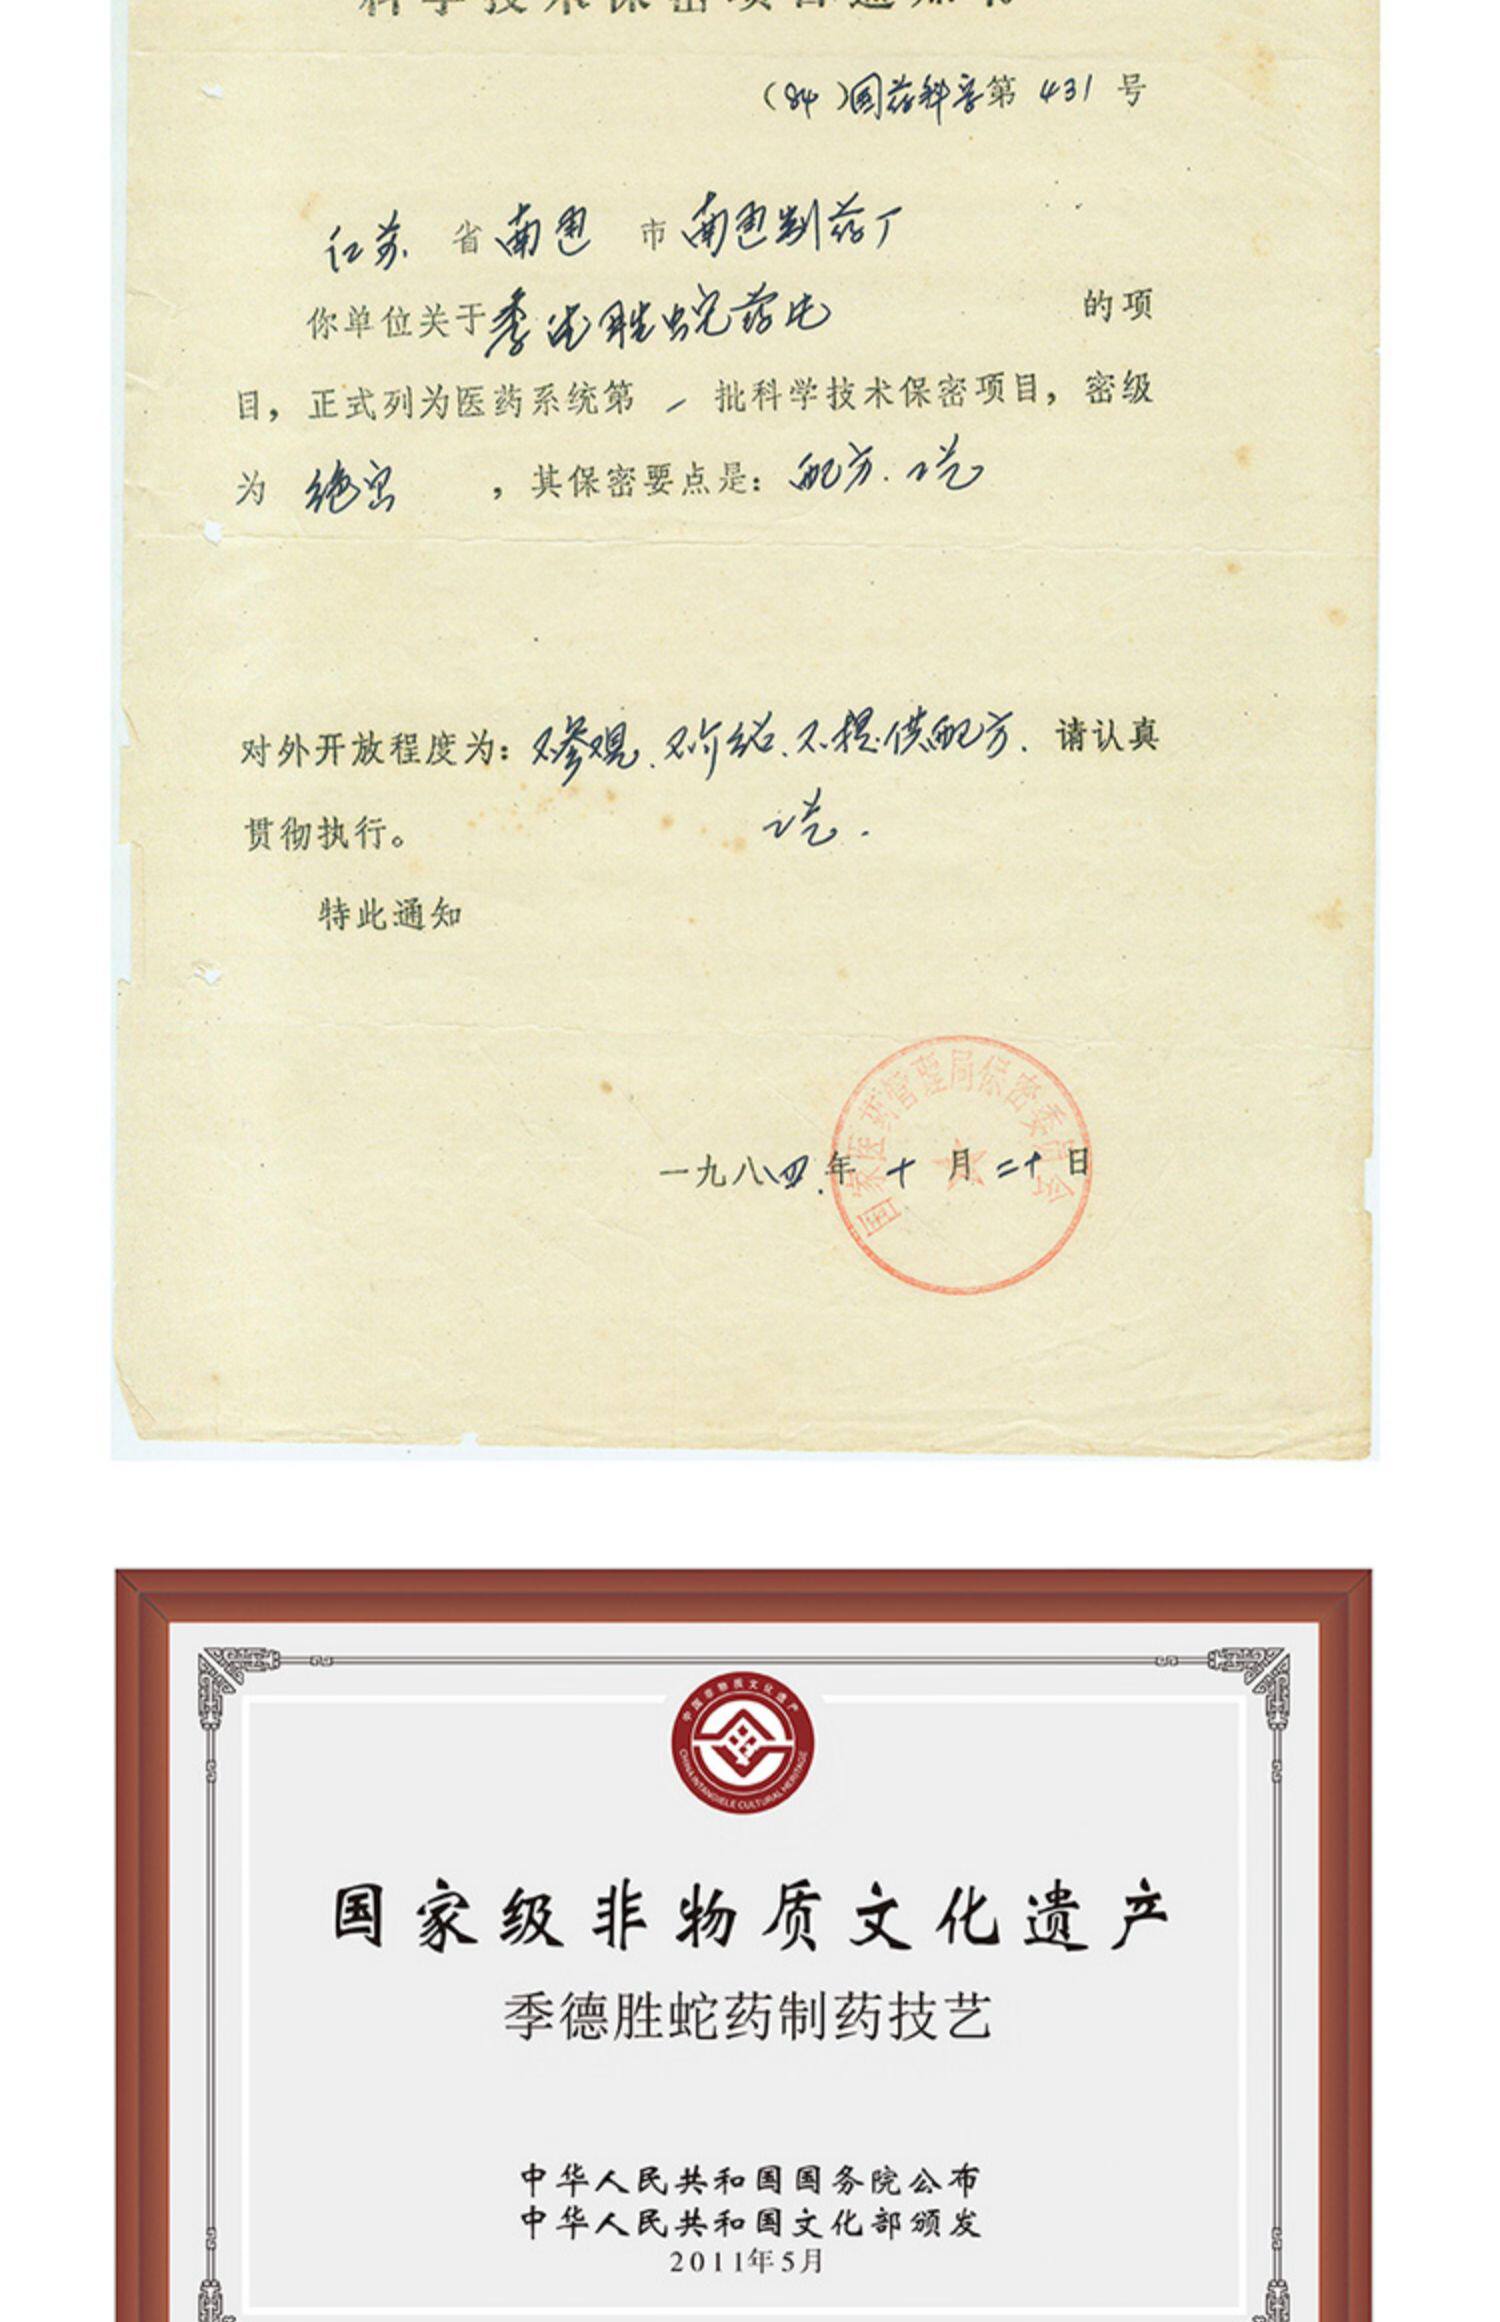 科学技术保密项目通知书
（84）国药科字第 431 号
江苏 省 南通 市 南通制药厂
你单位关于季德胜蛇药片 的项
目，正式列为医药系统第 一 批科学技术保密项目，密级
为 绝密 ，其保密要点是：配方．工艺
对外开放程度为：不参观．不介绍．不提供配方． 请认真
贯彻执行。 工艺．
特此通知
国家医药管理局保密委员会
一九八四年 十 月 二十 日
中国非物质文化遗产
CHINA INTANGIBLE CULTURAL HERITAGE
国家级非物质文化遗产
季德胜蛇药制药技艺
中华人民共和国国务院公布
中华人民共和国文化部颁发
2011年5月